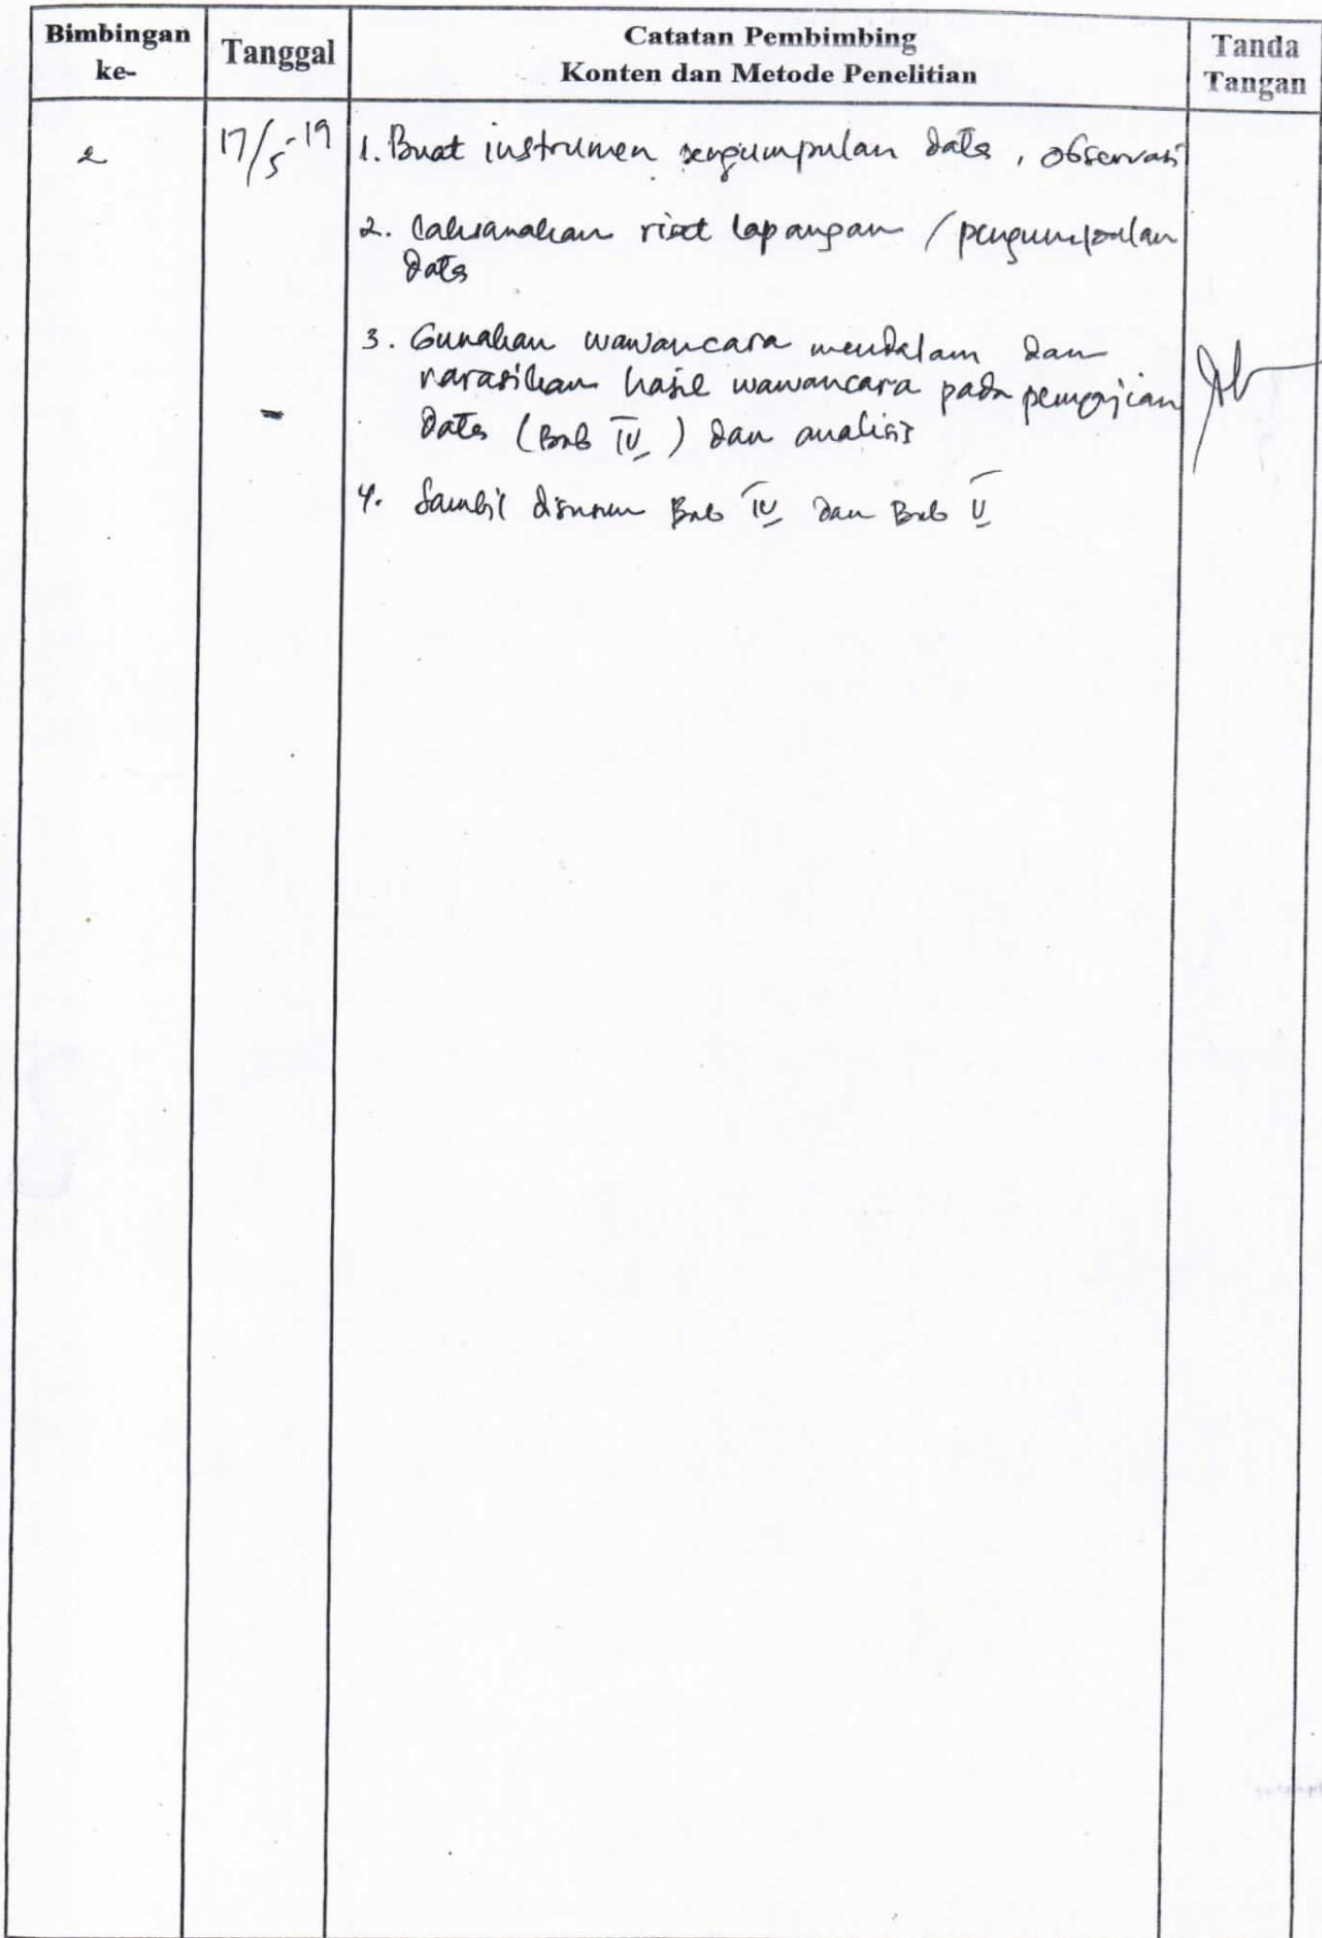 Bimbingan ke-
Tanggal
Catatan Pembimbing
Konten dan Metode Penelitian
Tanda Tangan
2
17/5-19
1. Buat instrumen pengumpulan data, observasi
2. Laksanakan riset lapangan / pengumpulan
data
3. Gunakan wawancara mendalam dan
narasikan hasil wawancara pada penyajian
data (Bab IV) dan analisis
4. Sambil disusun Bab IV dan Bab V